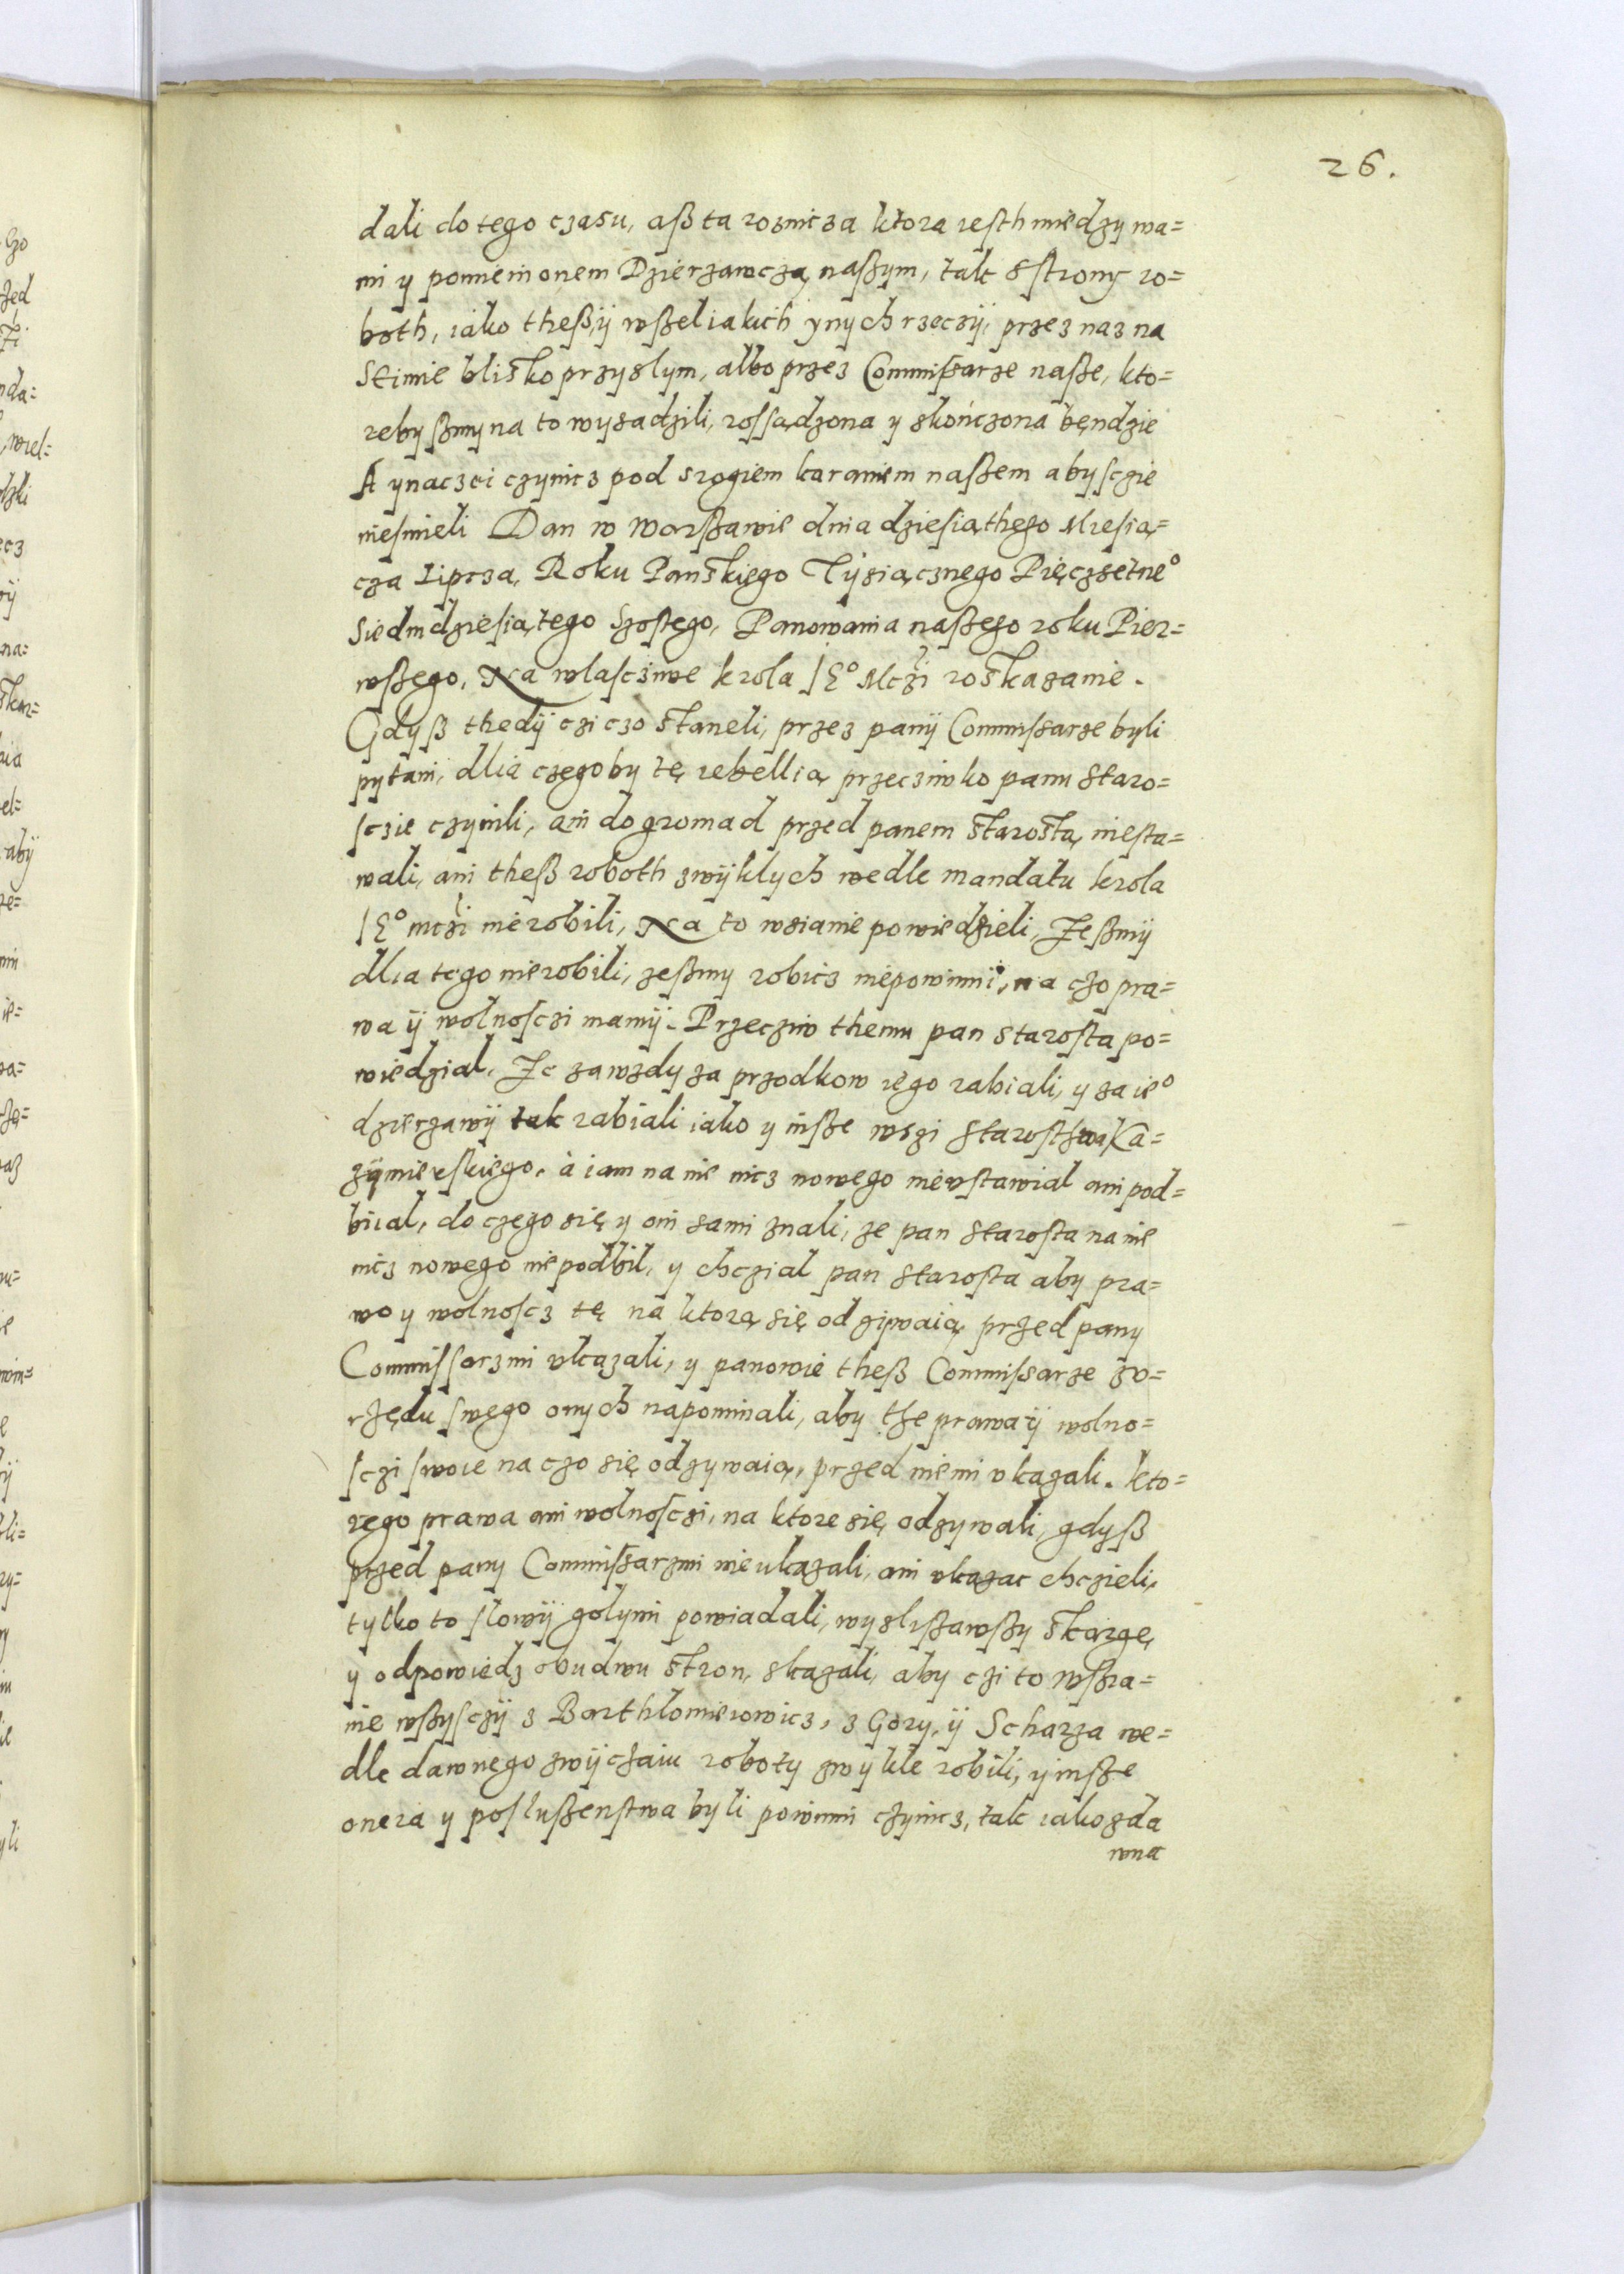 26.
dali do tego czasu, aß ta roznicza ktora iesth miedzy wa=
mi y pomienionem Dzierzawczą naßym, tak s strony ro=
both, iako theß ÿ wßeliakich ynych rzeczÿ, przez naz na
Seimie blisko przyslym, albo przez Commissarze naße, kto=
reby ßmy na to wysadzili, rossądzona y skończona bęndzie
A ynaczei czynicz pod srogiem karaniem naßem abysczie
niesmieli Dan w Warßawie dnia dziesiąthego Miesią=
cza Lipcza, Roku Panskiego Tysiącznego Pięczsetneº
Siedmdziesiątego Szostego, Panowania naßego roku Pier=
wßego, Na wlasczwe krola JEº Mczi roskazanie.
Gdyß thedÿ czi czo staneli, przez panÿ Commissarze byli
pytani, dlia czegoby tę rebellią przeczwko panu Staro=
sczie czynili, ani do gromad przed panem starostą niesta=
wali, ani theß roboth zwÿklych wedle mandatu krola
JEº mczi nierobili, Na to wsianie powiedzieli, Zeßmÿ
dlia tego nierobili, zeßmy robicz niepowinni, na czo pra=
wa ÿ wolnosczi mamÿ. Przecziw themu pan starosta po=
wiedzial, Ze zawzdy za przodkow iego rabiali, y za ieº
dzierzawÿ tak rabiali iako y inße wszi Starosthwa Ka=
zÿmierskiego, à iam na nie nicz nowego nieustawial ani pod=
biial, do czego się y oni sami znali, ze pan Starosta na nie
nicz nowego niepodbil, y chczial pan Starosta aby pra=
wo y wolnoscz tę na ktorą się odzywaią przed pany
Commissarzmi ukazali, y panowie theß Commissarze zu=
rzędu swego onych napominali, aby the prawa ÿ wolno=
sczi swoie na czo się odzywaią, przed niemi ukazali. kto=
rego prawa ani wolnosczi, na ktore się odzywali, gdyß
przed pany Commissarzmi nieukazali, ani ukazac chczieli,
tylko to slowÿ golymi powiadali, wyslißawßy skargę
y odpowiedz obudwu stron, skazali, aby czi to wßia=
nie wßysczÿ z Barthlomieiowicz, z Gory, ÿ Scharza we=
dle dawnego zwÿczaiu roboty zwykle robili, y inße
onera y poslußenstwa byli powinni czynicz, tak iako zda
wna